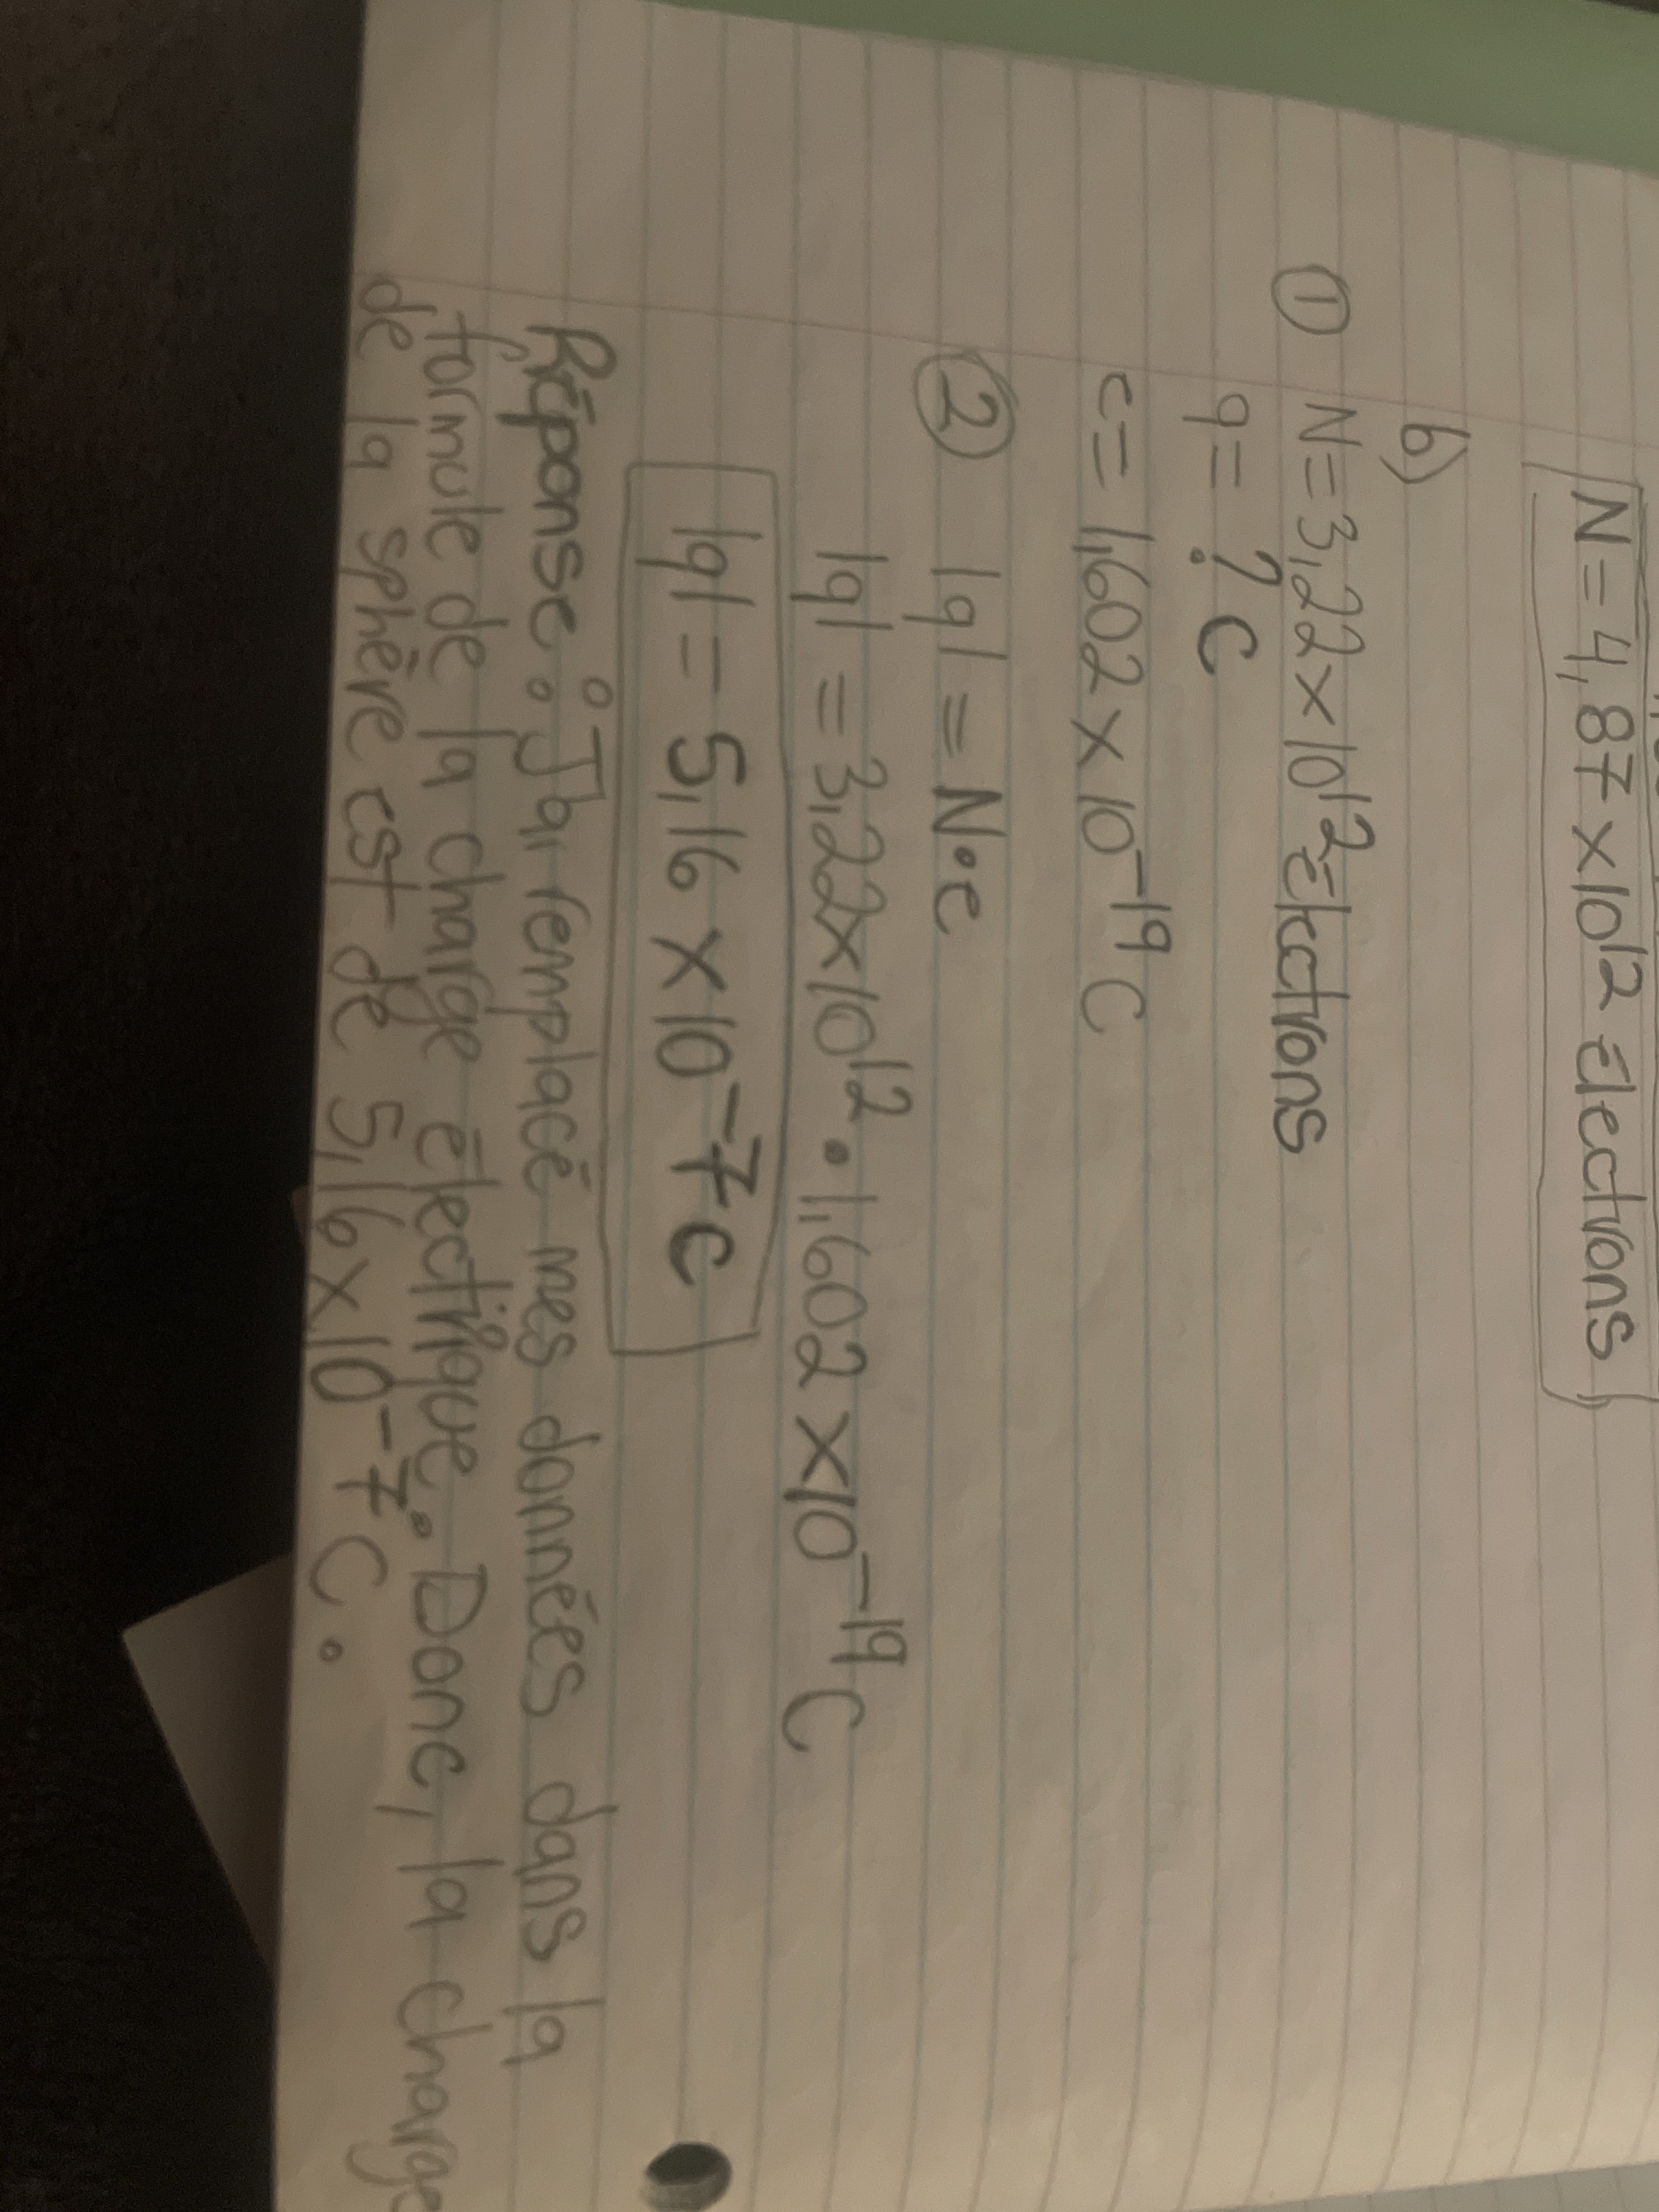 N = 4,87 x 10¹² électrons
b)
① N = 3,22 x 10¹² électrons
q = ? C
e = 1,602 x 10⁻¹⁹ C
② |q| = N • e
|q| = 3,22 x 10¹² • 1,602 x 10⁻¹⁹ C
|q| = 5,16 x 10⁻⁷ C
Réponse : J'ai remplacé mes données dans la
formule de la charge électrique. Donc, la charge
de la sphère est de 5,16 x 10⁻⁷ C.